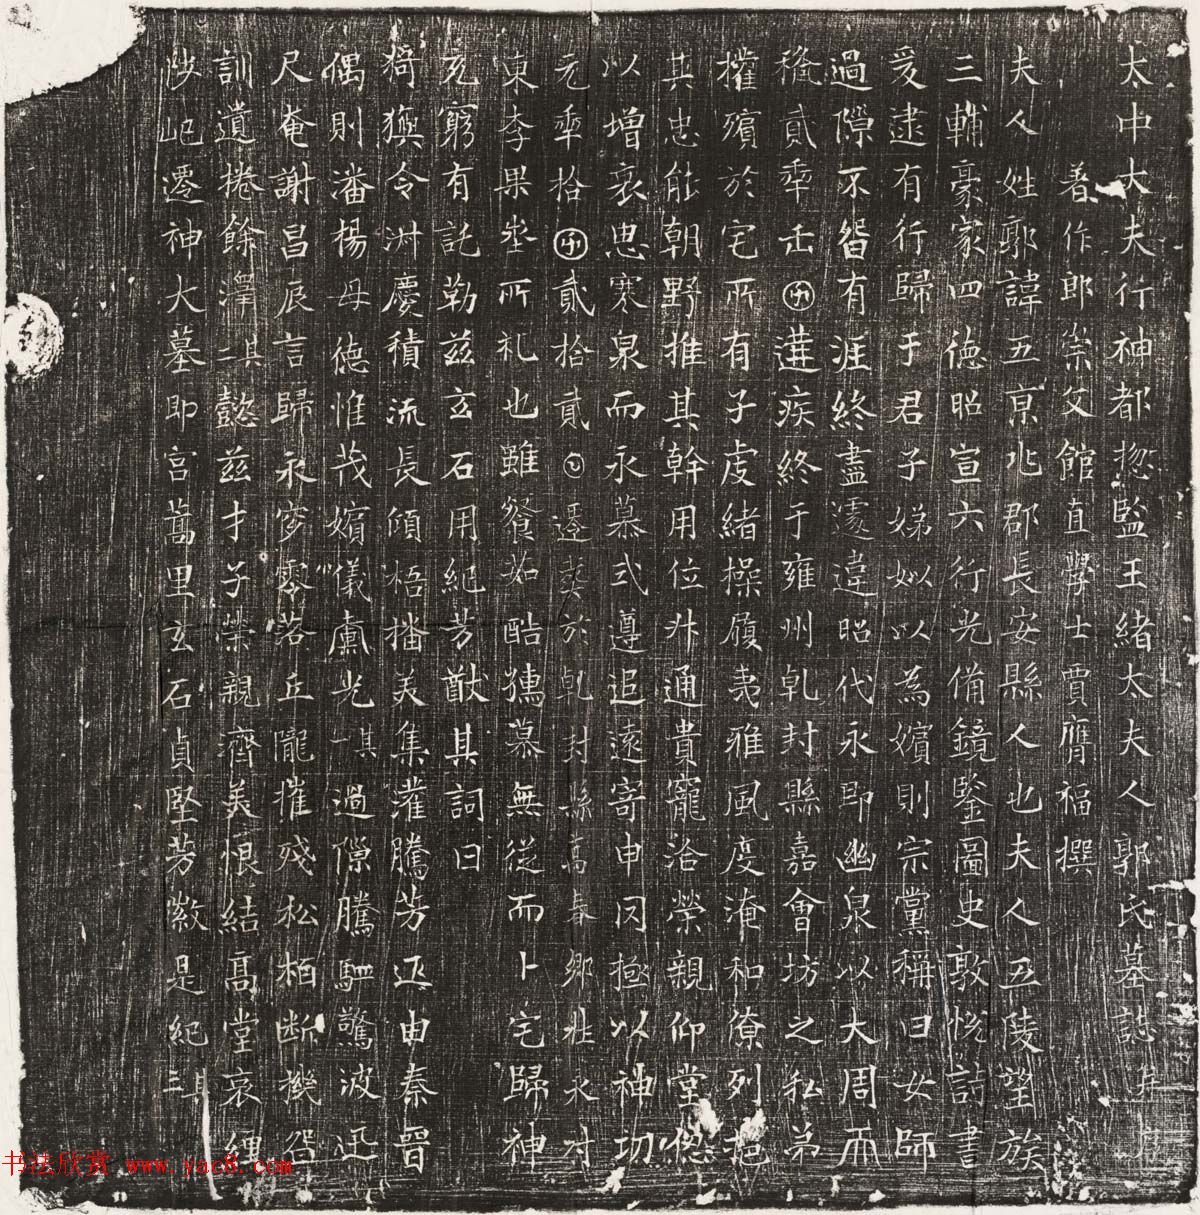 太中大夫行神都揔監王緒太夫人郭氏墓誌并序
著作郎崇文館直學士賈膺福撰
夫人姓郭諱五京兆郡長安縣人也夫人五陵望族
三輔豪家四德昭宣六行光備鏡鑒圖史敦悅詩書
爰逮有行歸于君子娣姒以為嬪則宗黨稱曰女師
過隙不留有涯終盡遽違昭代永即幽泉以大周𠑺
稔貳𠡦五𠥱遘疾終于雍州乹封縣嘉會坊之私第
權殯於宅所有子虔緒操履夷雅風度淹和僚列挹
其忠能朝野推其幹用位升通貴寵洽榮親仰堂
以增哀思寒泉而永慕式遵追遠寄申罔極以神功
元𠡦拾𠥱貳拾貳㋺遷葬於乹封縣高春鄉 永 村
東李果坐所礼也雖餐茹酷攀慕無從而卜宅歸神
克窮有託勒茲玄石用紀芳猷其詞曰
猗歟令淑慶積流長傾梧播美集灌騰芳迊由秦晉
偶則潘楊母德惟茂嬪儀有光其一過隙騰駟驚波迅
尺奄謝昌辰言歸永穸零落丘隴摧殘松栢断機留
訓遺捲餘澤其二懿茲才子榮親濟美恨結高堂哀纏
陟屺遷神大墓即宫蒿里玄石貞堅芳徽是紀其三
书法欣赏 www.yac8.com